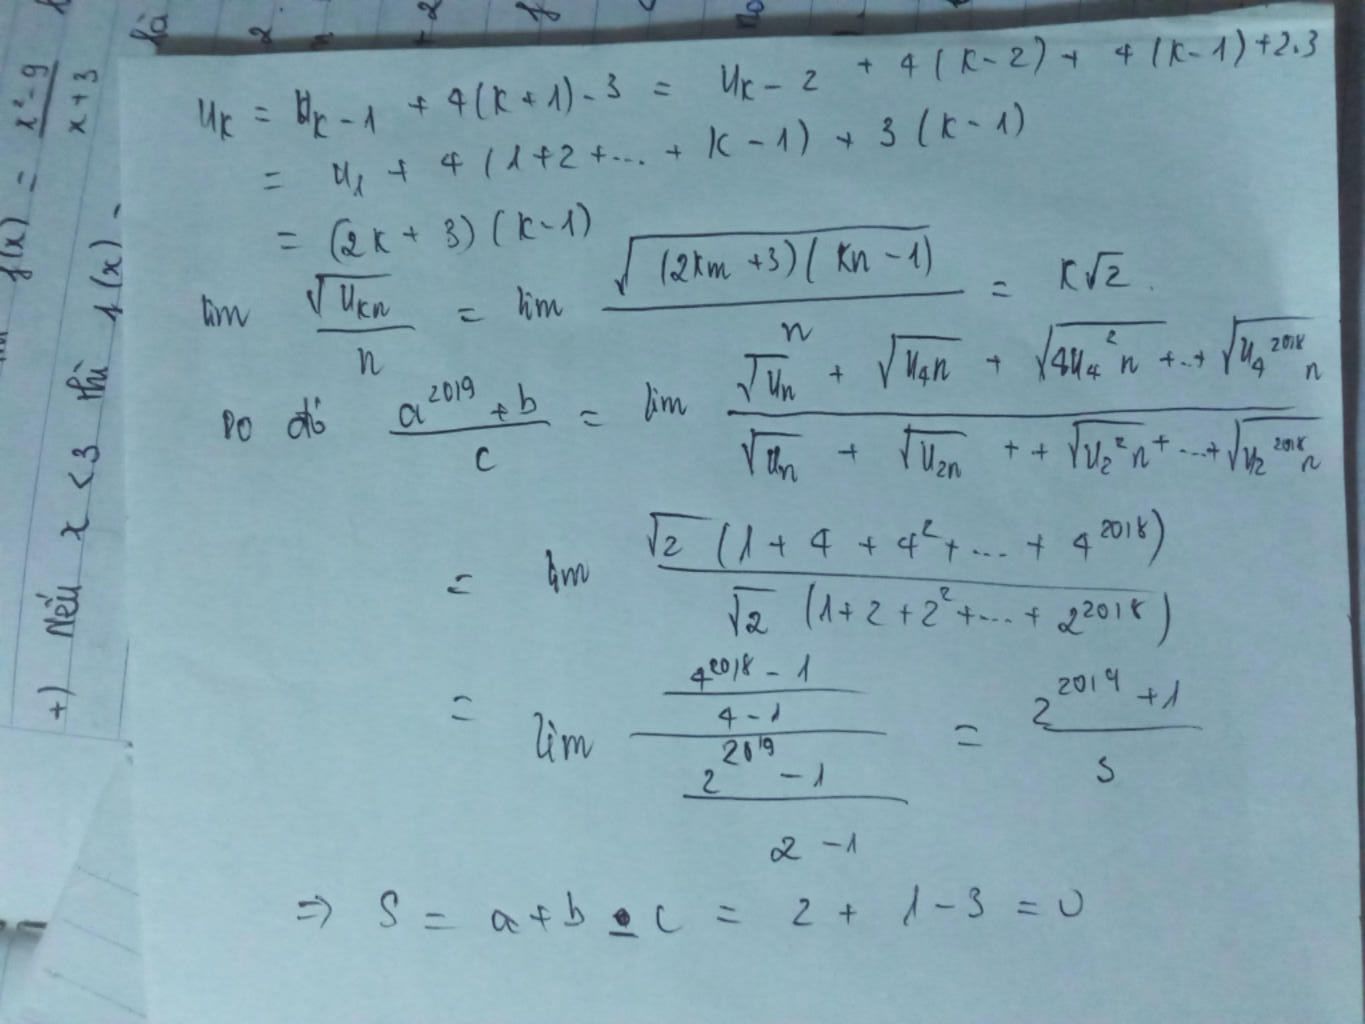 f(x) = \frac{x^2 - 9}{x + 3}
+) Nếu x < 3 thì f(x) -
là
2
+2
u_K = u_{K-1} + 4(K+1) - 3 = u_{K-2} + 4(K-2) + 4(K-1) + 2.3
= u_1 + 4(1+2+...+ K-1) + 3(K-1)
= (2K+3)(K-1)
lim \frac{\sqrt{u_{Kn}}}{n} = lim \frac{\sqrt{(2Km+3)(Kn-1)}}{n} = K\sqrt{2}.
Do đó \frac{a^{2019}+b}{c} = lim \frac{\sqrt{u_n} + \sqrt{u_{4n}} + \sqrt{4u_{4^2n}} +..+ \sqrt{u_{4^{2018}n}}}{\sqrt{u_n} + \sqrt{u_{2n}} + + \sqrt{u_{2^2n}} + ...+ \sqrt{u_{2^{2018}n}}}
= lim \frac{\sqrt{2}(1+4+4^2+...+4^{2018})}{\sqrt{2}(1+2+2^2+...+2^{2018})}
= lim \frac{\frac{4^{2018}-1}{4-1}}{\frac{2^{2019}-1}{2-1}} = \frac{2^{2019}+1}{3}
⇒ S = a+b - c = 2 + 1 - 3 = 0